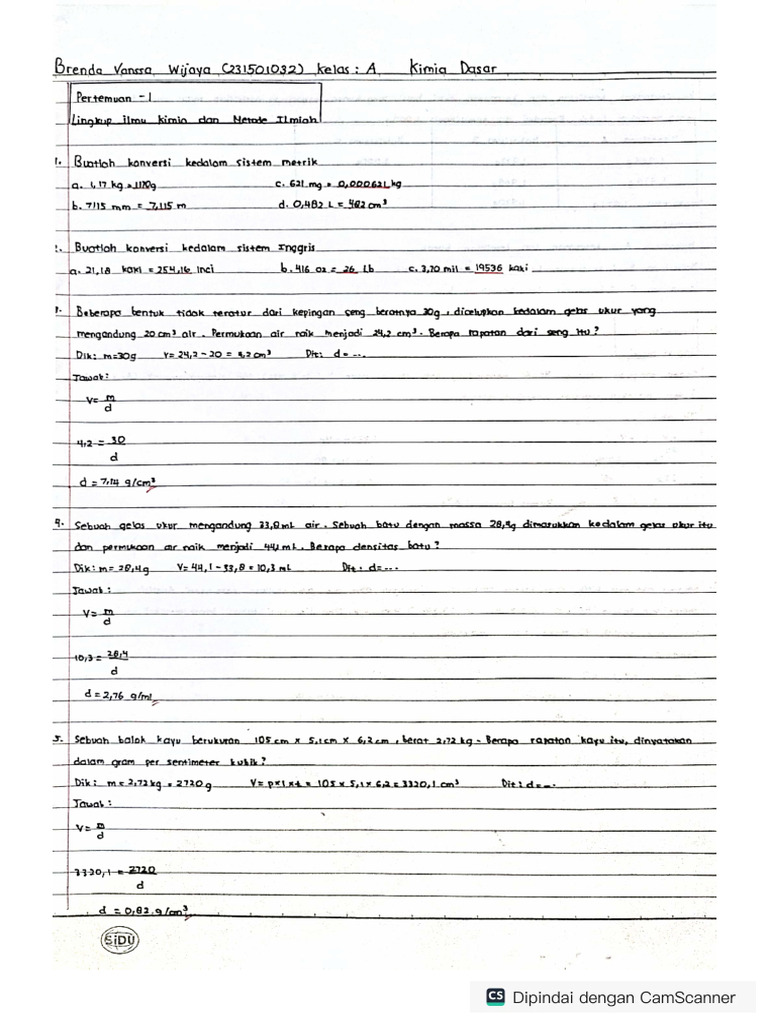 Brenda Vanssa Wijaya (231501032) Kelas : A Kimia Dasar
Pertemuan - 1
Lingkup ilmu kimia dan Metode Ilmiah
1. Buatlah konversi kedalam sistem metrik
a. 1,17 kg = 1170g c. 621 mg = 0,000621 kg
b. 7115 mm = 7,115 m d. 0,482 L = 482 cm³
2. Buatlah konversi kedalam sistem Inggris
a. 21,18 kaki = 254,16 inci b. 416 oz = 26 Lb c. 3,70 mil = 19536 kaki
3. Beberapa bentuk tidak teratur dari kepingan seng beratnya 30g, dicelupkan kedalam gelas ukur yang
mengandung 20 cm³ air. Permukaan air naik menjadi 24,2 cm³. Berapa rapatan dari seng itu?
Dik: m=30g V= 24,2 - 20 = 4,2 cm³ Dit: d= ...
Jawab:
V= m
d
4,2 = 30
d
d = 7,14 g/cm³
4. Sebuah gelas ukur mengandung 33,8 mL air. Sebuah batu dengan massa 28,4g dimasukkan kedalam gelas ukur itu
dan permukaan air naik menjadi 44,1 mL. Berapa densitas batu?
Dik: m= 28,4g V= 44,1 - 33,8 = 10,3 mL Dit: d= ...
Jawab :
V= m
d
10,3 = 28,4
d
d = 2,76 g/mL
5. Sebuah balok kayu berukuran 105 cm x 5,1 cm x 6,2 cm, berat 2,72 kg. Berapa rapatan kayu itu, dinyatakan
dalam gram per sentimeter kubik?
Dik: m = 2,72 kg = 2720 g V= p x l x t = 105 x 5,1 x 6,2 = 3320,1 cm³ Dit: d= ...
Jawab :
V= m
d
3320,1 = 2720
d
d = 0,82 g/cm³
SiDU
CS Dipindai dengan CamScanner